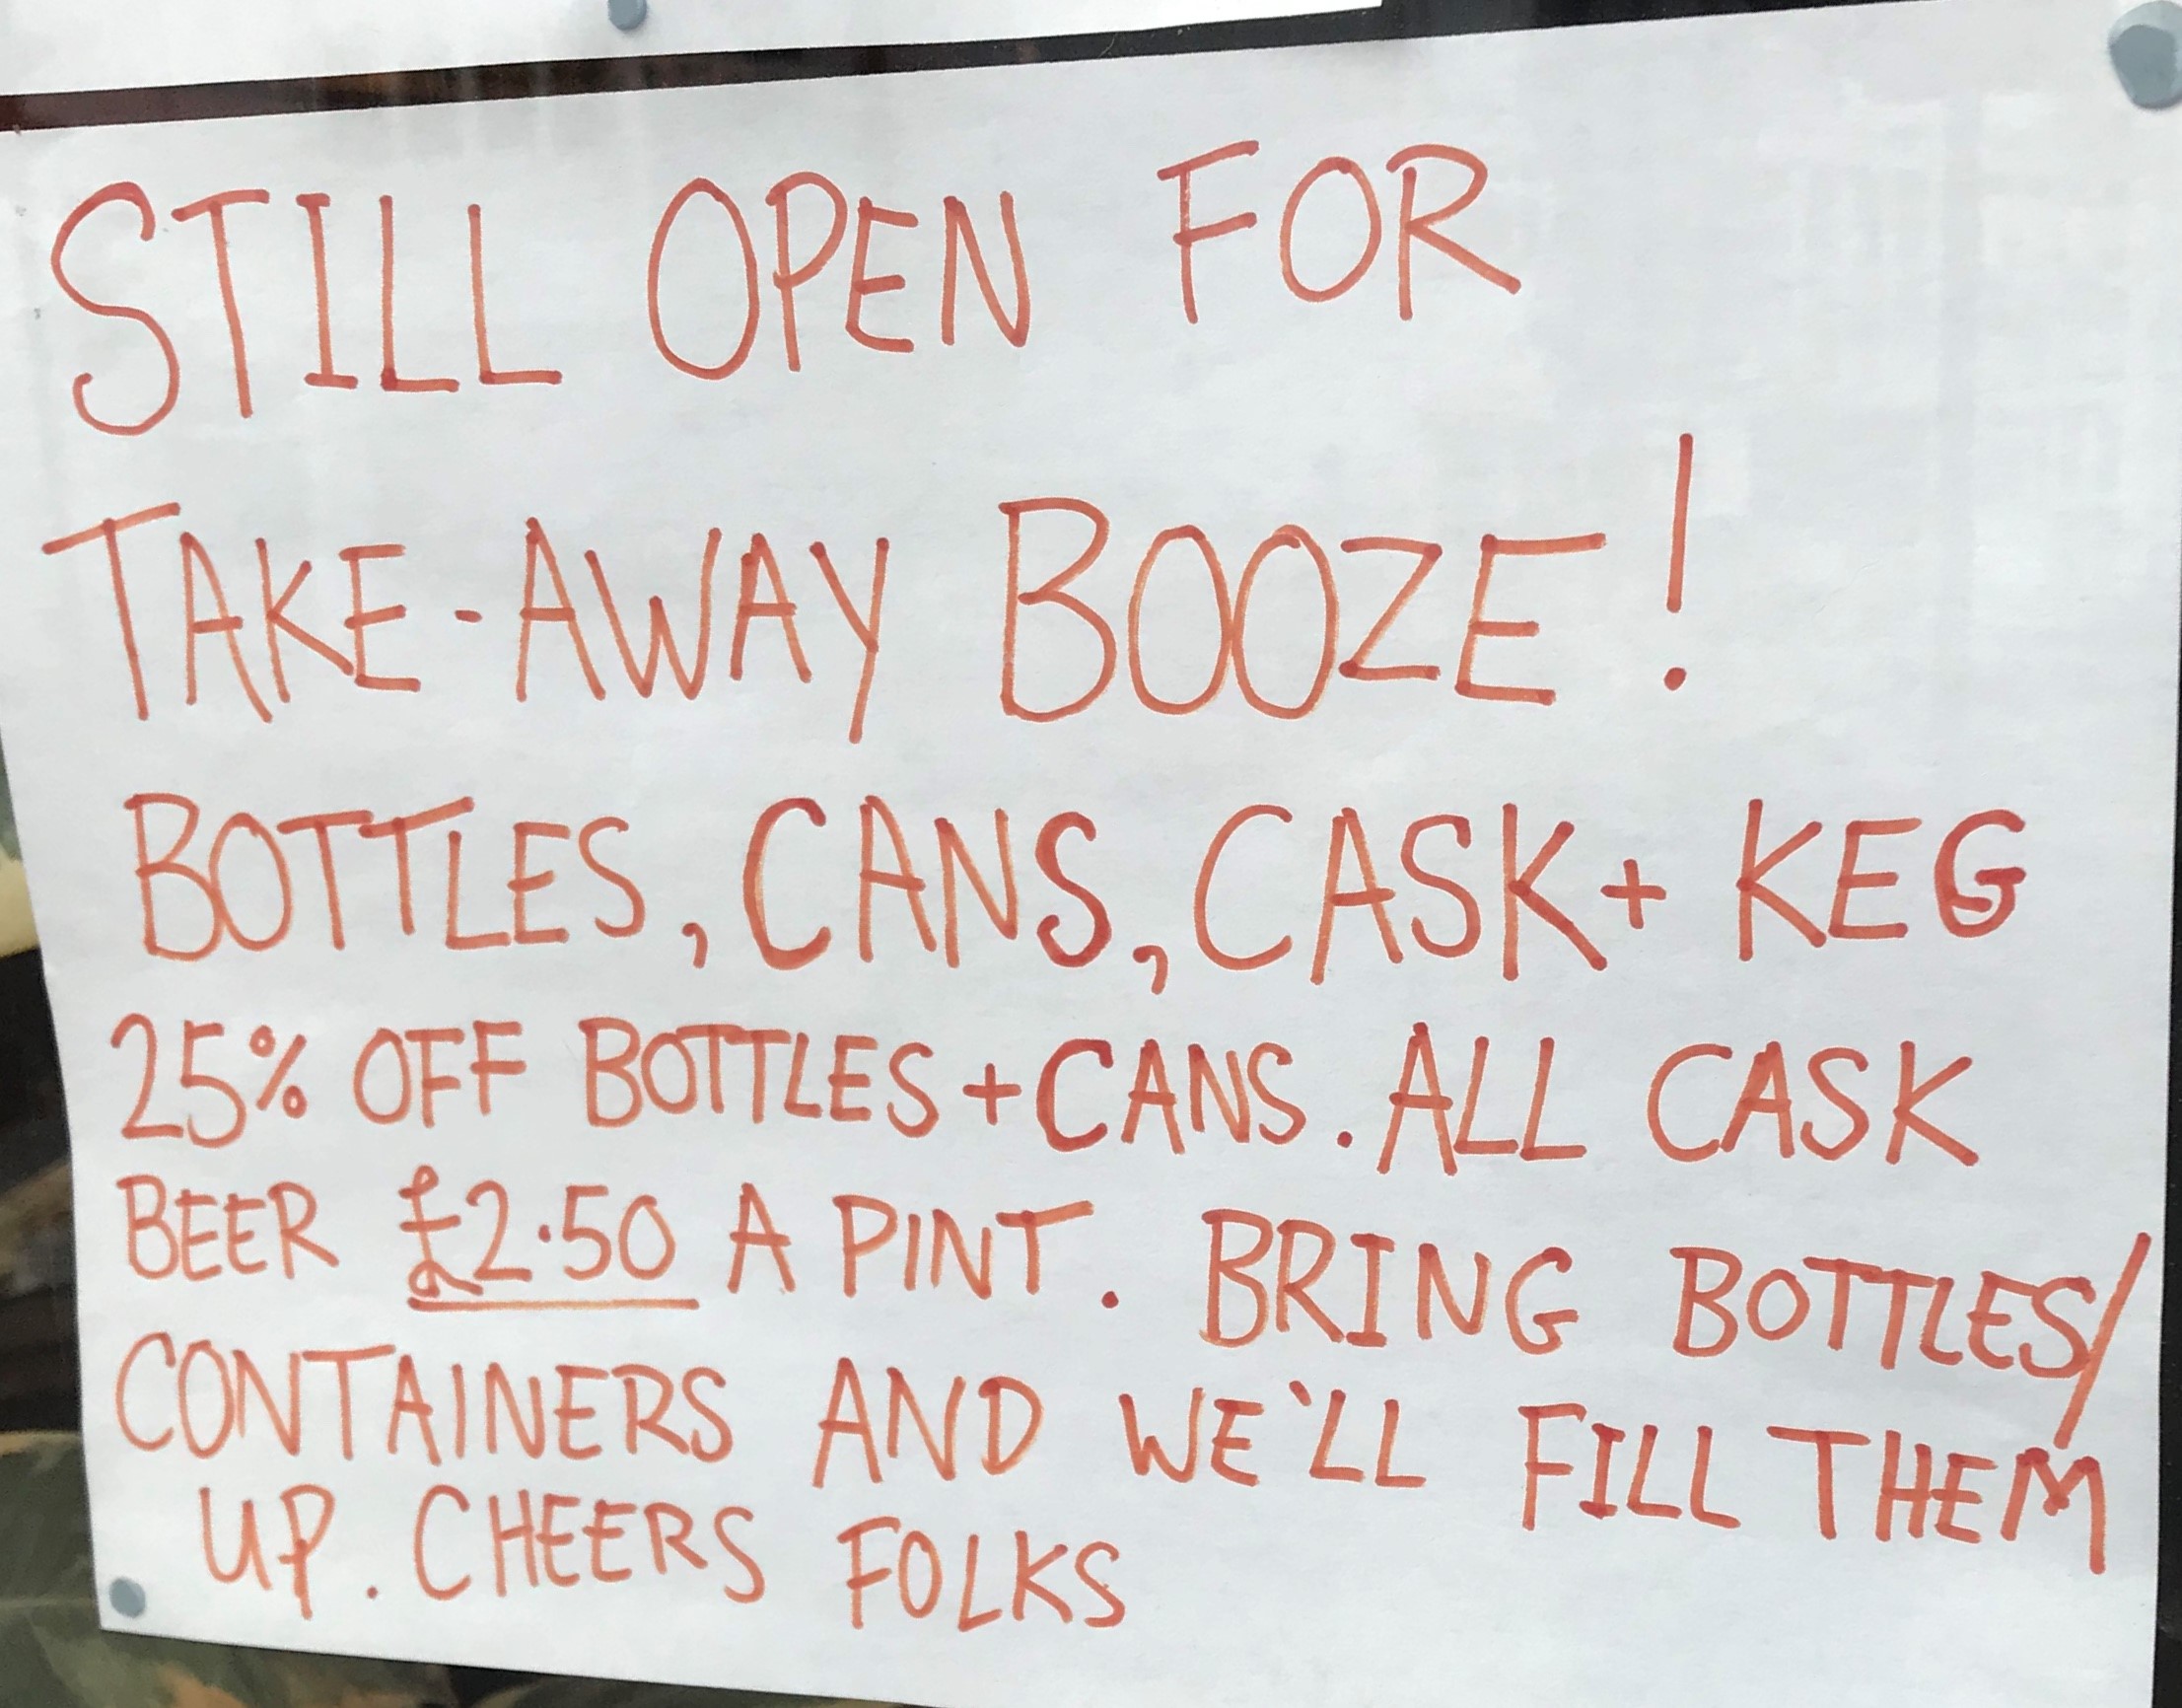 STILL OPEN FOR
TAKE-AWAY BOOZE!
BOTTLES, CANS, CASK + KEG
25% OFF BOTTLES + CANS. ALL CASK
BEER £2·50 A PINT. BRING BOTTLES/
CONTAINERS AND WE'LL FILL THEM
UP. CHEERS FOLKS